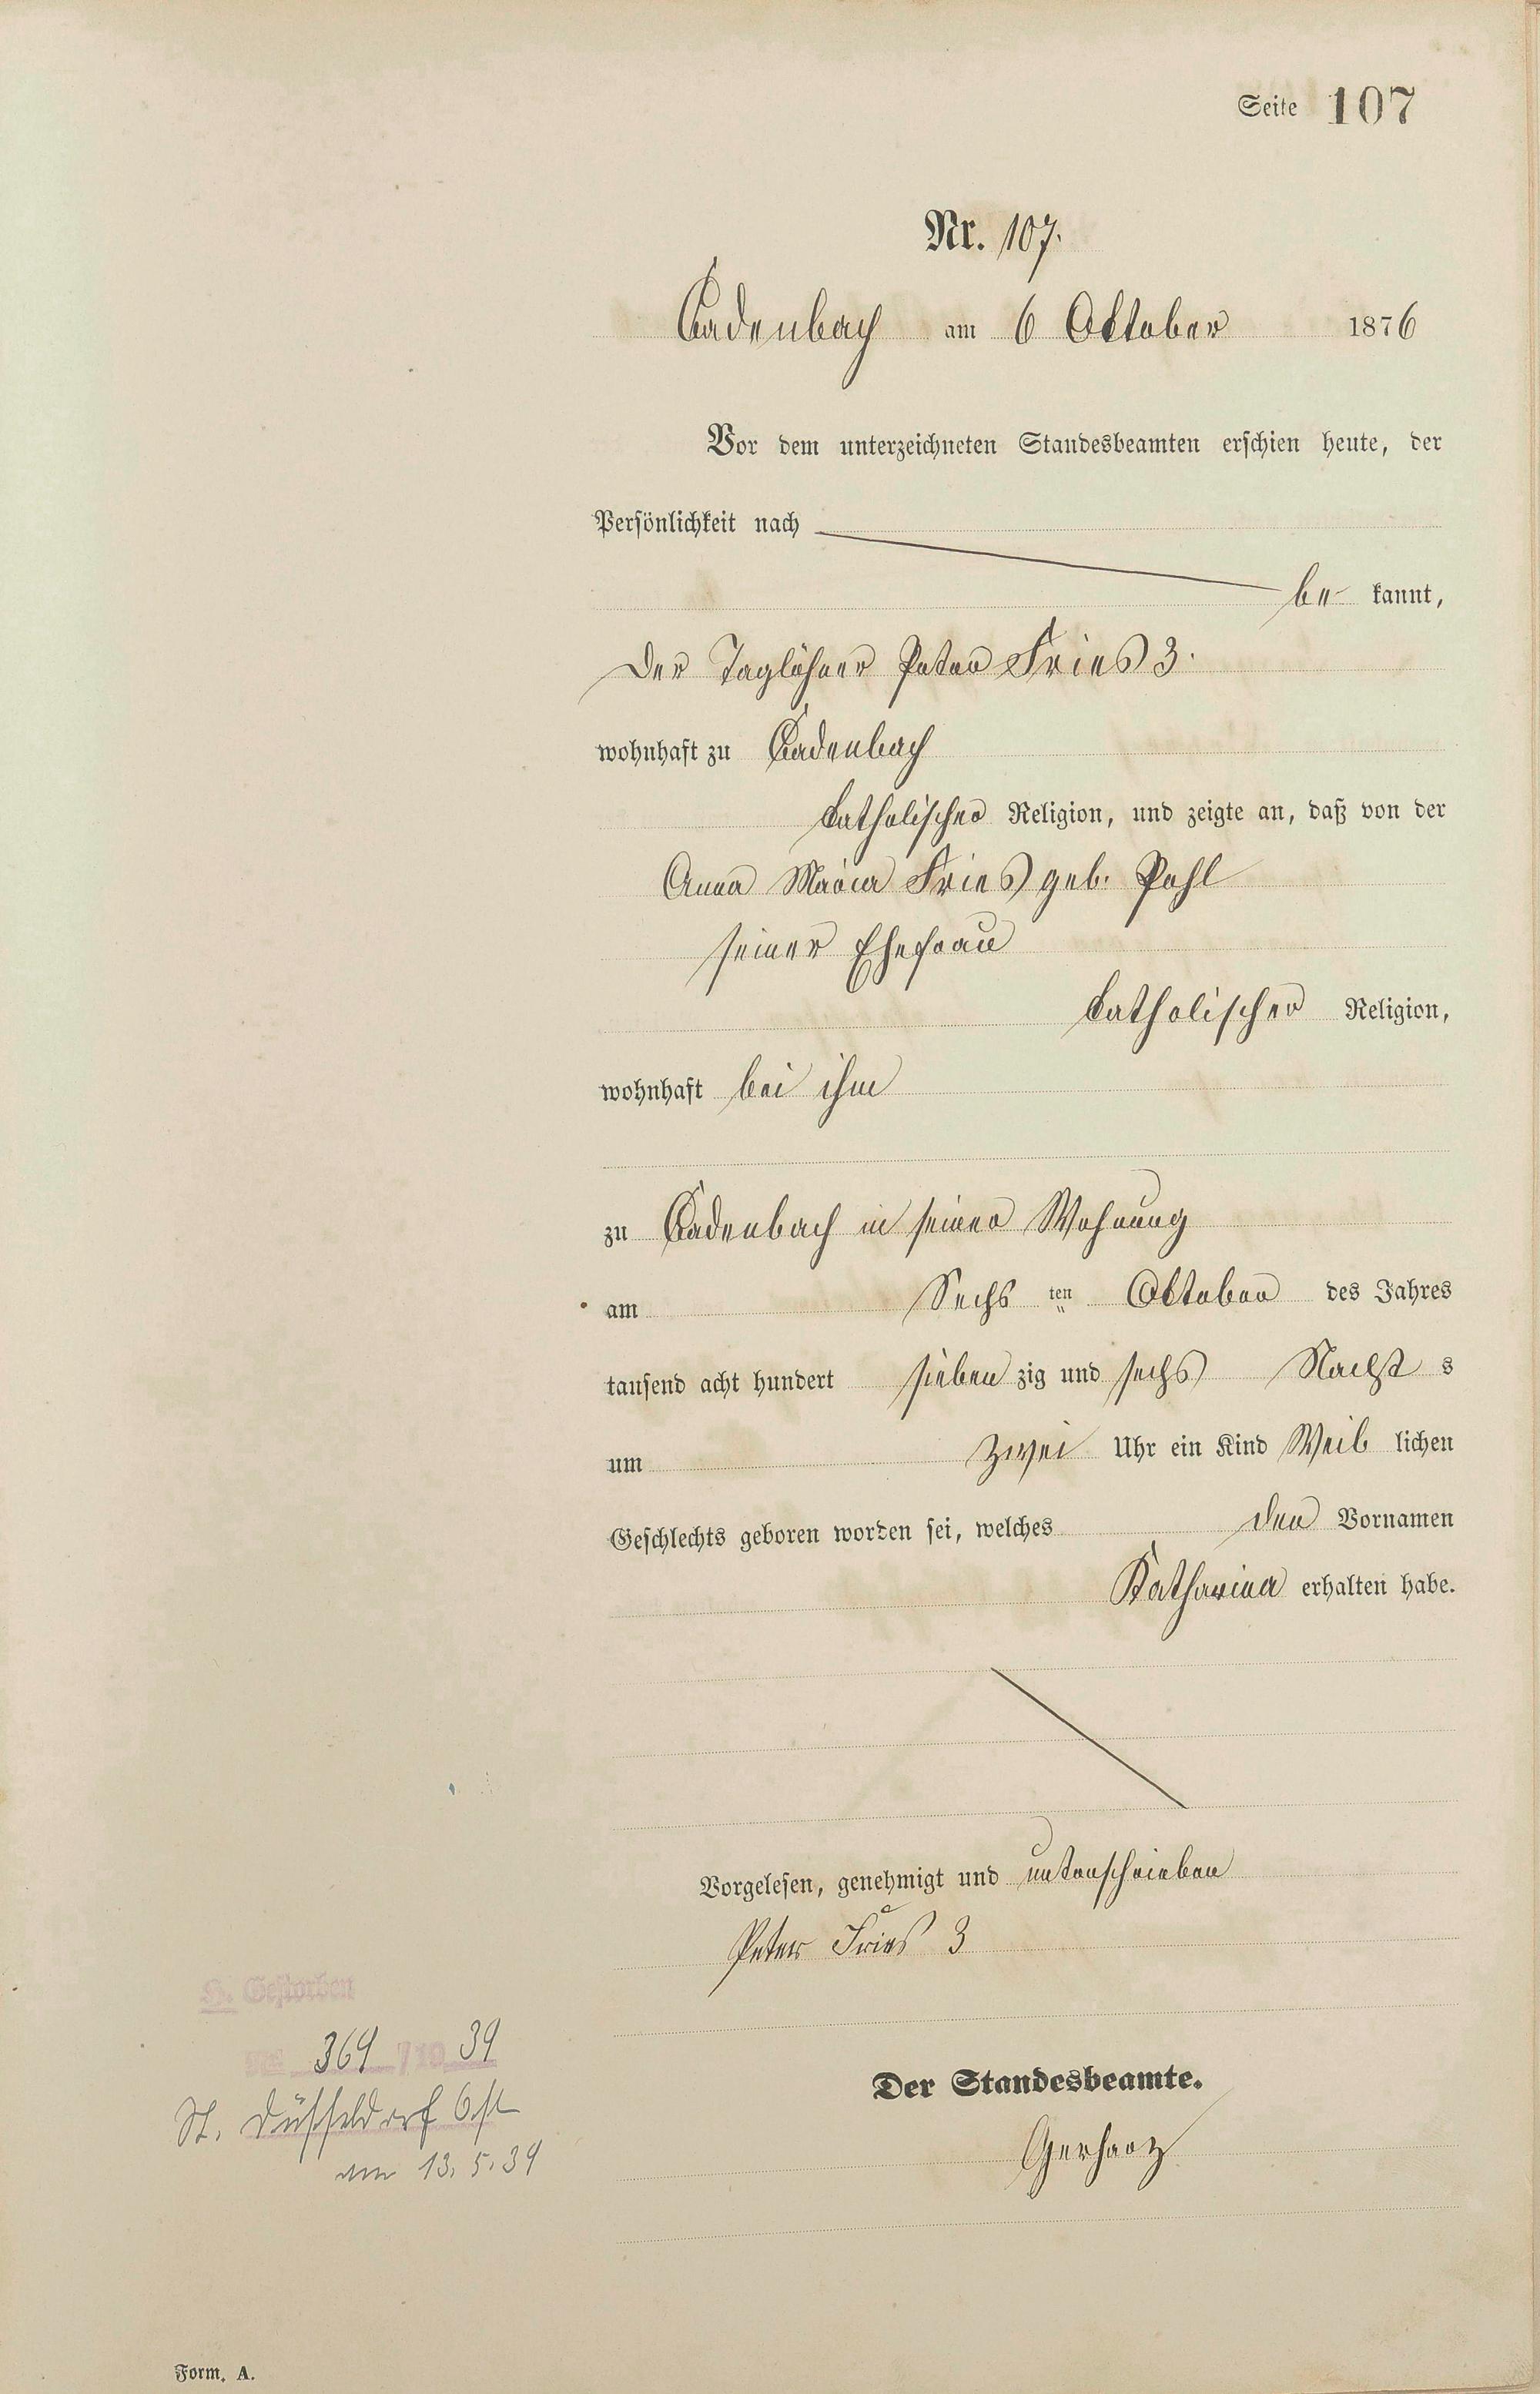 Seite 107
Nr. 107.
Cadenbach am 6 Oktober 1876
Vor dem unterzeichneten Standesbeamten erschien heute, der
Persönlichkeit nach
be kannt,
Der Taglöhner Peter Fries 3.
wohnhaft zu Cadenbach
katholischer Religion, und zeigte an, daß von der
Anna Maria Fries geb. Pohl
seiner Ehefrau
katholischer Religion,
wohnhaft bei ihm
zu Cadenbach in seiner Wohnung
am Sechs ten Oktober des Jahres
tausend acht hundert sieben zig und sechs Nachts
um zwei Uhr ein Kind Weib lichen
Geschlechts geboren worden sei, welches den Vornamen
Katharina erhalten habe.
Vorgelesen, genehmigt und unterschrieben
Peter Fries 3
H. Gestorben
369 39
St. Düsseldorf Ost
am 13. 5. 39
Der Standesbeamte.
Gerharz
Form. A.